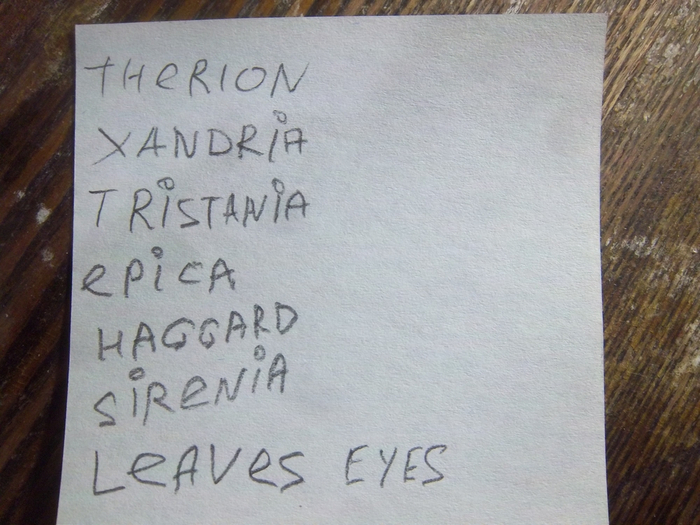 THeRION
XANDRiA
TRiSTANiA
ePiCA
HAGGARD
SiReNiA
LeAVeS EYES